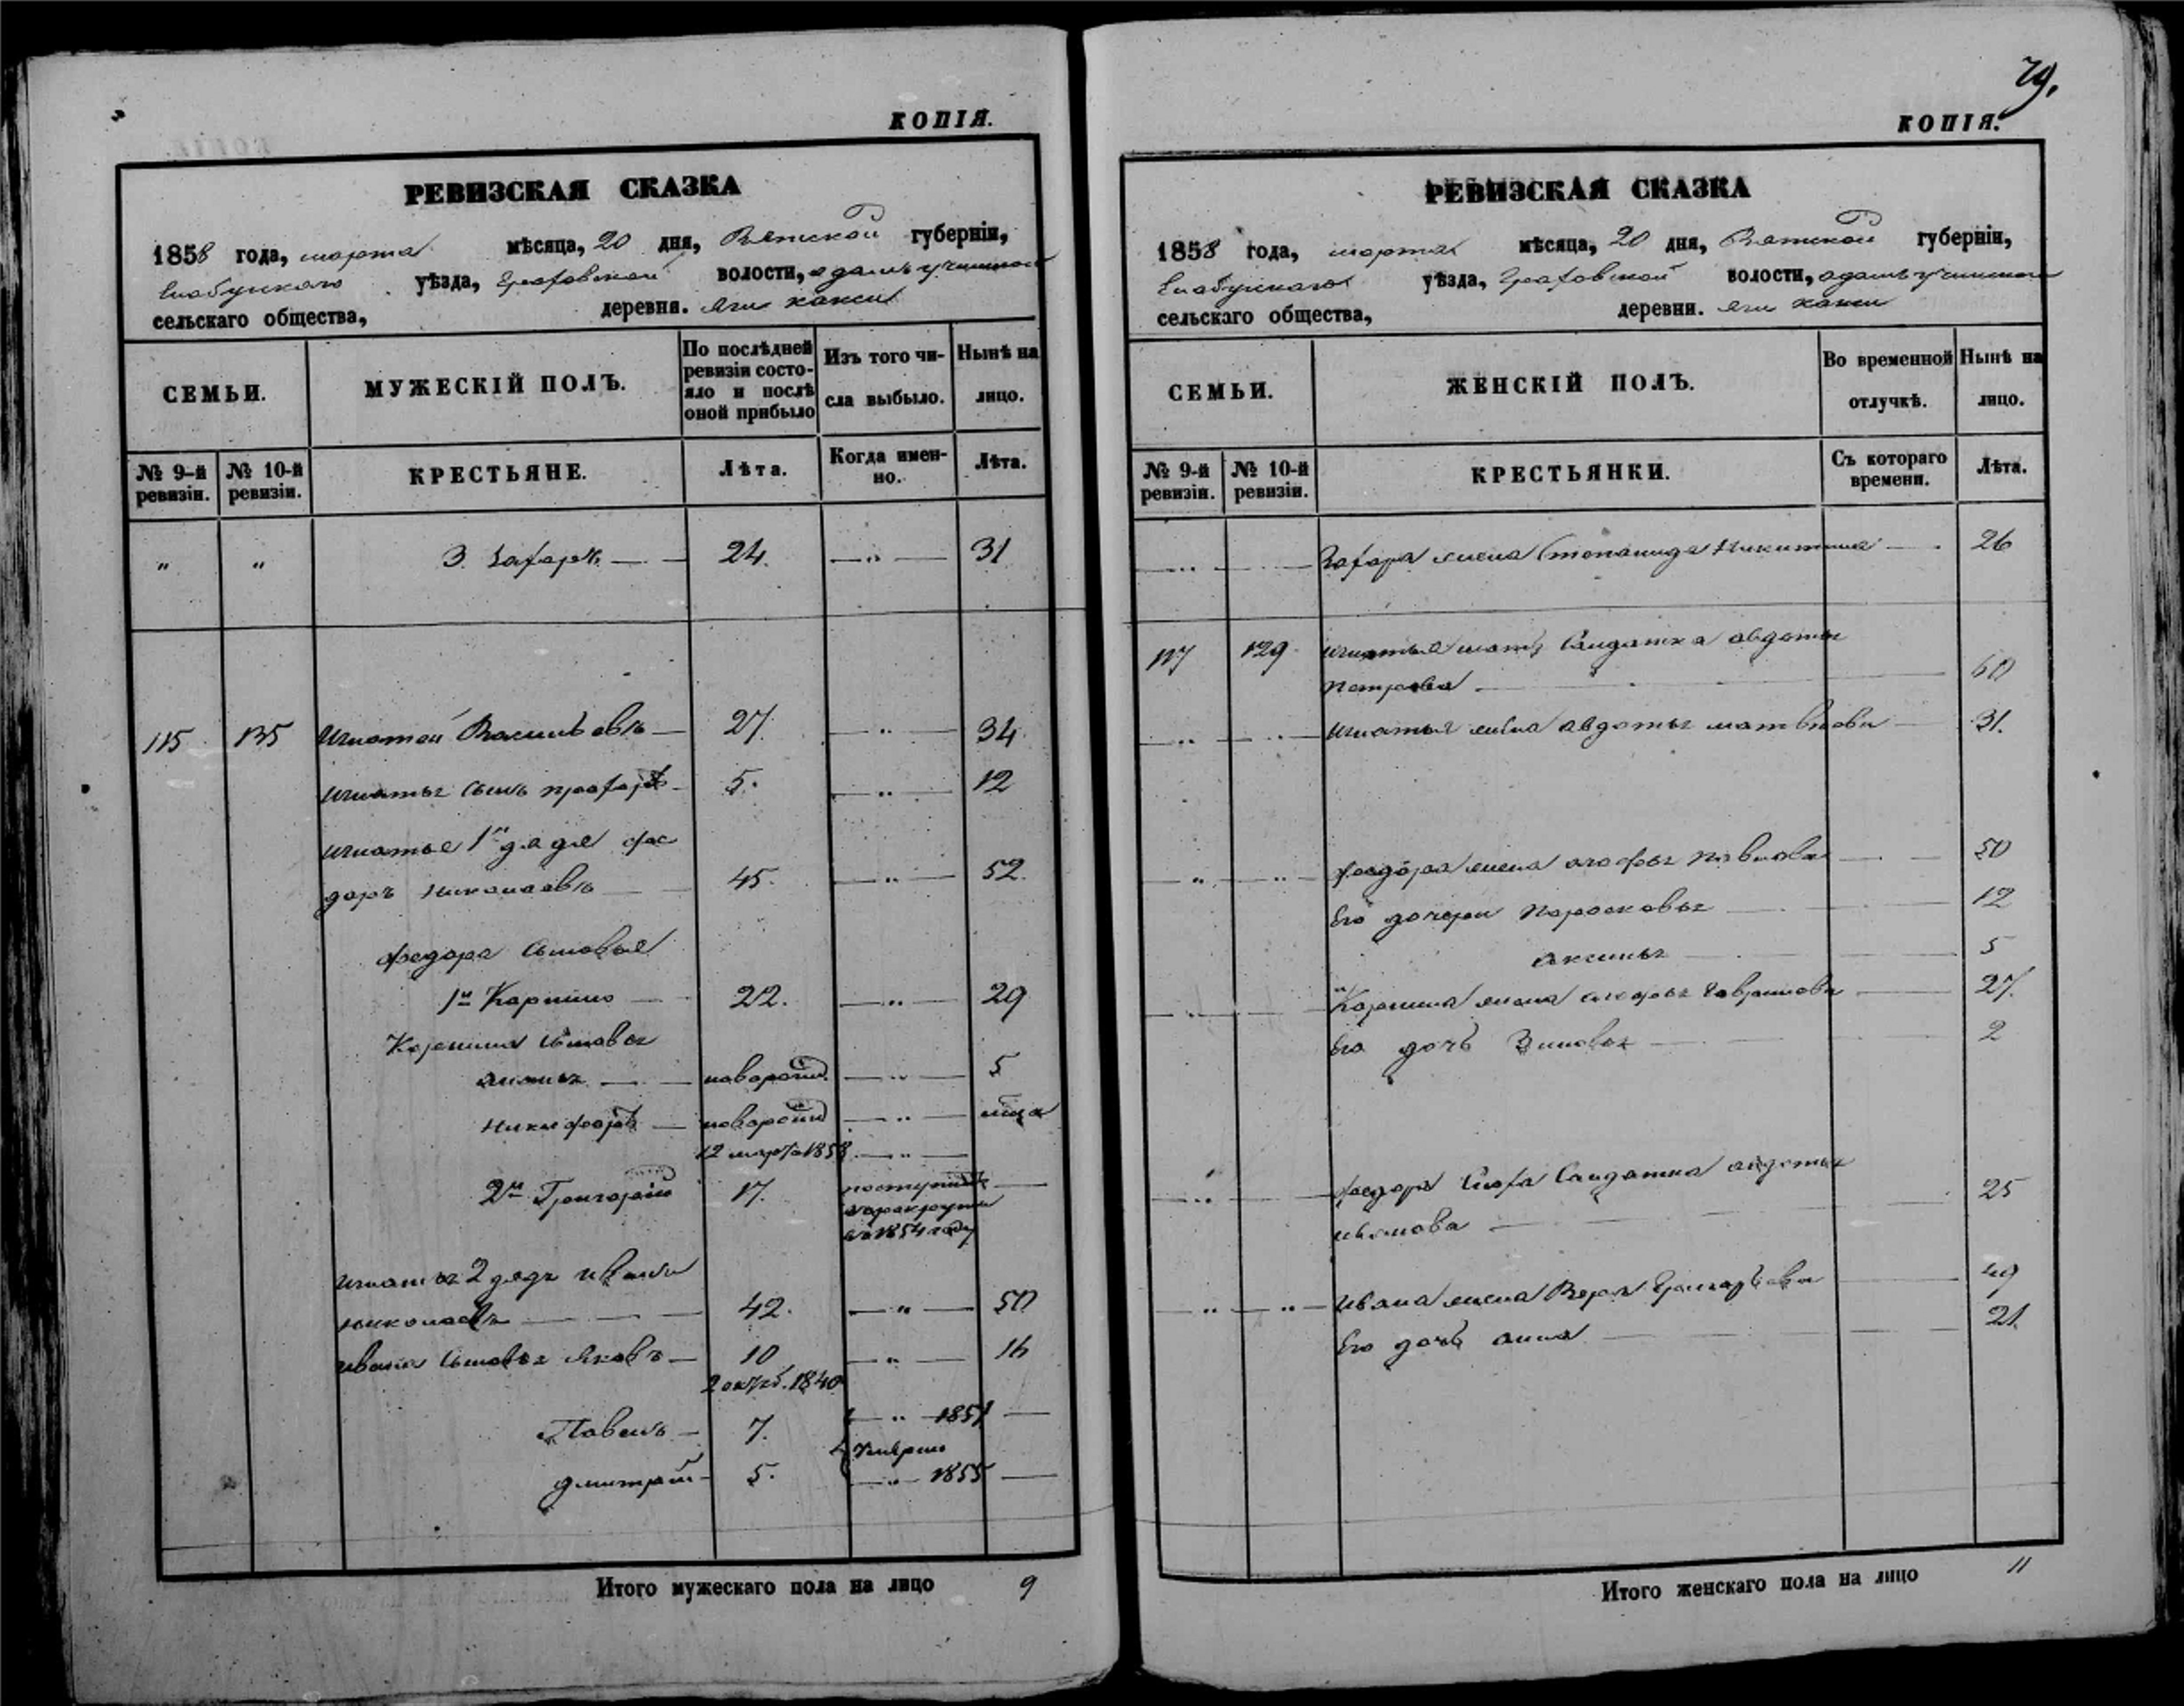 КОПІЯ.
РЕВИЗСКАЯ СКАЗКА
1858 года, марта мѣсяца, 20 дня, Вятской губерніи,
Елабужскаго уѣзда, Граховской волости,
сельскаго общества, деревни.
СЕМЬИ.
МУЖЕСКІЙ ПОЛЪ.
По послѣдней ревизіи состояло и послѣ оной прибыло
Изъ того числа выбыло.
Нынѣ на лицо.
№ 9-й ревизіи.
№ 10-й ревизіи.
КРЕСТЬЯНЕ.
Лѣта.
Когда именно.
Лѣта.
" " 3. Захаръ — 24. — " — 31
115 135 Игнатей Васильевъ — 27. — " — 34
Игнатья сынъ 5. — " — 12
Игнатья 1й дядя Фе
доръ Николаевъ — 45. — " — 52.
Федора сыновья
1й 22. — " — 29
сыновья
— новорожд. — " — 5
Никифоръ — новорожд — " —
12 марта 1858 — " —
2й Григорій 17. поступилъ
в рекруты
въ 1854 году
Игнатья 2 дядя Иванъ
Николаевъ — 42. — " — 50
Ивана сыновья Яковъ — 10 — " — 16
1840
Павелъ — 7. — " — 1851 —
умерли
Дмитрій — 5. — " — 1855 —
Итого мужескаго пола на лицо 9
79.
КОПІЯ.
РЕВИЗСКАЯ СКАЗКА
1858 года, марта мѣсяца, 20 дня, Вятской губерніи,
Елабужскаго уѣзда, Граховской волости,
сельскаго общества, деревни.
СЕМЬИ.
ЖЕНСКІЙ ПОЛЪ.
Во временной отлучкѣ.
Нынѣ на лицо.
№ 9-й ревизіи.
№ 10-й ревизіи.
КРЕСТЬЯНКИ.
Съ котораго времени.
Лѣта.
Захара жена Степанида Никитина — 26
117 129 Игнатья мать Салдатка Авдотья
Петрова — 60
Игнатья жена Авдотья Матвѣева — 31.
Федора жена — 50
Его дочери Парасковья — 12
Аксинья — 5
жена — 27.
Его дочь Зиновья — 2
Федора сноха Салдатка Авдотья
— 25
Ивана жена Вера Григорьева — 49
Его дочь Анна — 21.
Итого женскаго пола на лицо 11